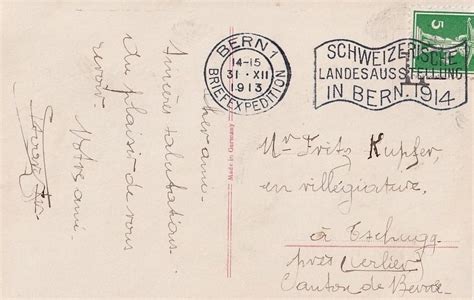 Cher ami.
Sincères salutations.
Au plaisir de vous
revoir.
Votre ami
Made in Germany
BERN 1
14-15
31·XII
1913
BRIEFEXPEDITION
SCHWEIZERISCHE
LANDESAUSSTELLUNG
IN BERN. 1914
5
Mr. Fritz Kupfer,
en villégiature.
à Tschugg
près Cerlier
Canton de Berne